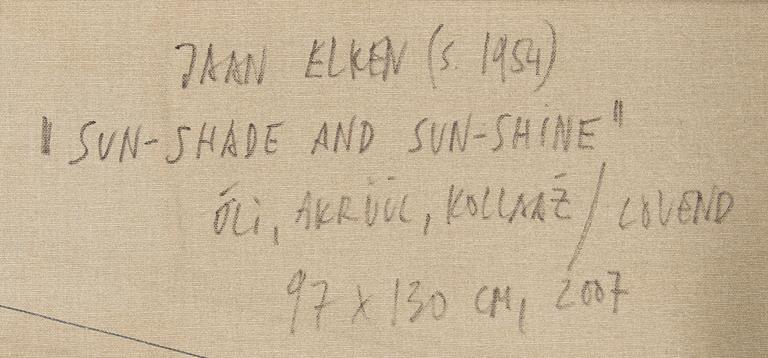 JAAN ELKEN (s. 1954)
"SUN-SHADE AND SUN-SHINE"
ÕLI, AKRÜÜL, KOLLAAŽ / LÕUEND
97 x 130 CM, 2007